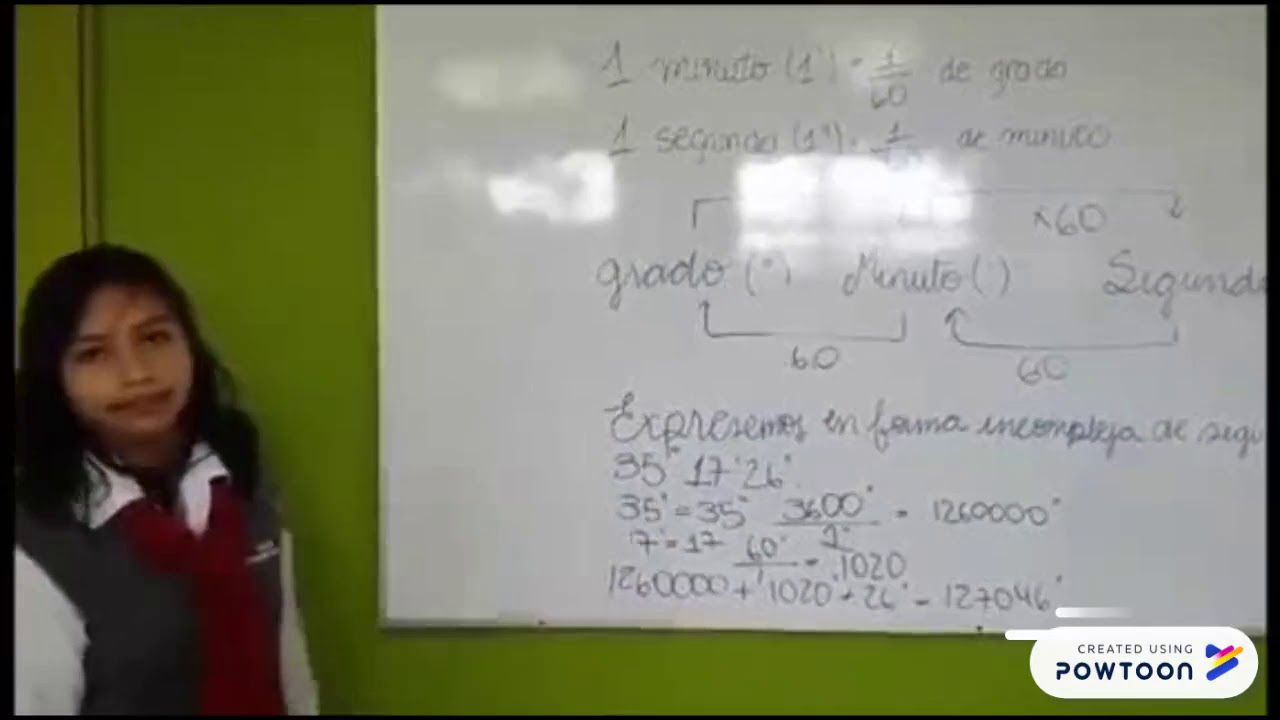 1 minuto (1') = 1/60 de grado
1 segundo (1") = 1/ de minuto
×60
grado (°) Minuto (') Segundo
60 60
Expresemos en forma incompleja de segu
35° 17' 26"
35° = 35° 3600"/1° = 1260000"
17' = 17 60"/1' = 1020
1260000 + 1020" + 26" = 127046"
CREATED USING
POWTOON